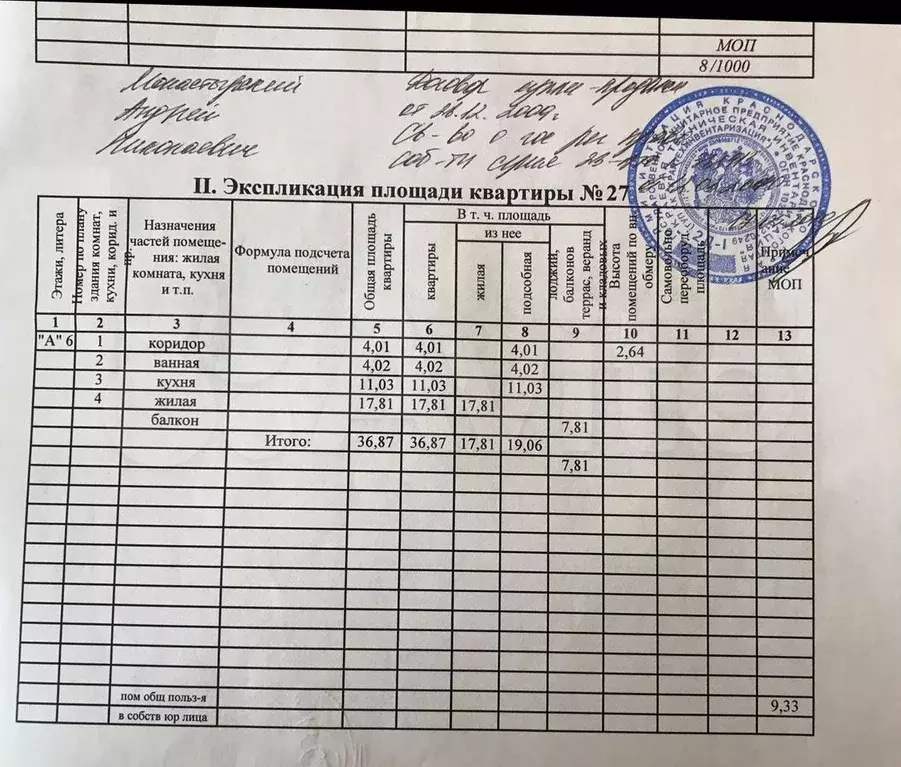 МОП
8/1000
Монастырский Договор купли-продажи
Андрей от 28.12.2009г.
Николаевич Св-во о гос рег
соб-ти серия 23-
II. Экспликация площади квартиры № 27
Этажи, литера
Номер по плану здания комнат, кухни, корид. и пр.
Назначения частей помеще-ния: жилая комната, кухня и т.п.
Формула подсчета помещений
Общая площадь квартиры
В т. ч. площадь
квартиры
из нее
жилая
подсобная
лоджий, балконов террас, веранд и кладовых
Высота помещений по вн. обмеру
Самовольно переоборуд. площадь
Примеч ание МОП
1 2 3 4 5 6 7 8 9 10 11 12 13
"А" 6 1 коридор 4,01 4,01 4,01 2,64
2 ванная 4,02 4,02 4,02
3 кухня 11,03 11,03 11,03
4 жилая 17,81 17,81 17,81
балкон 7,81
Итого: 36,87 36,87 17,81 19,06
7,81
пом общ польз-я 9,33
в собств юр лица